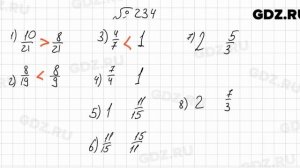 GDZ.RU
№ 234
1) 10/21 > 8/21
2) 8/19 < 8/9
3) 4/7 < 1
4) 7/4 1
5) 1 11/15
6) 11/15 15/11
7) 2 5/3
8) 2 7/3
GDZ.RU